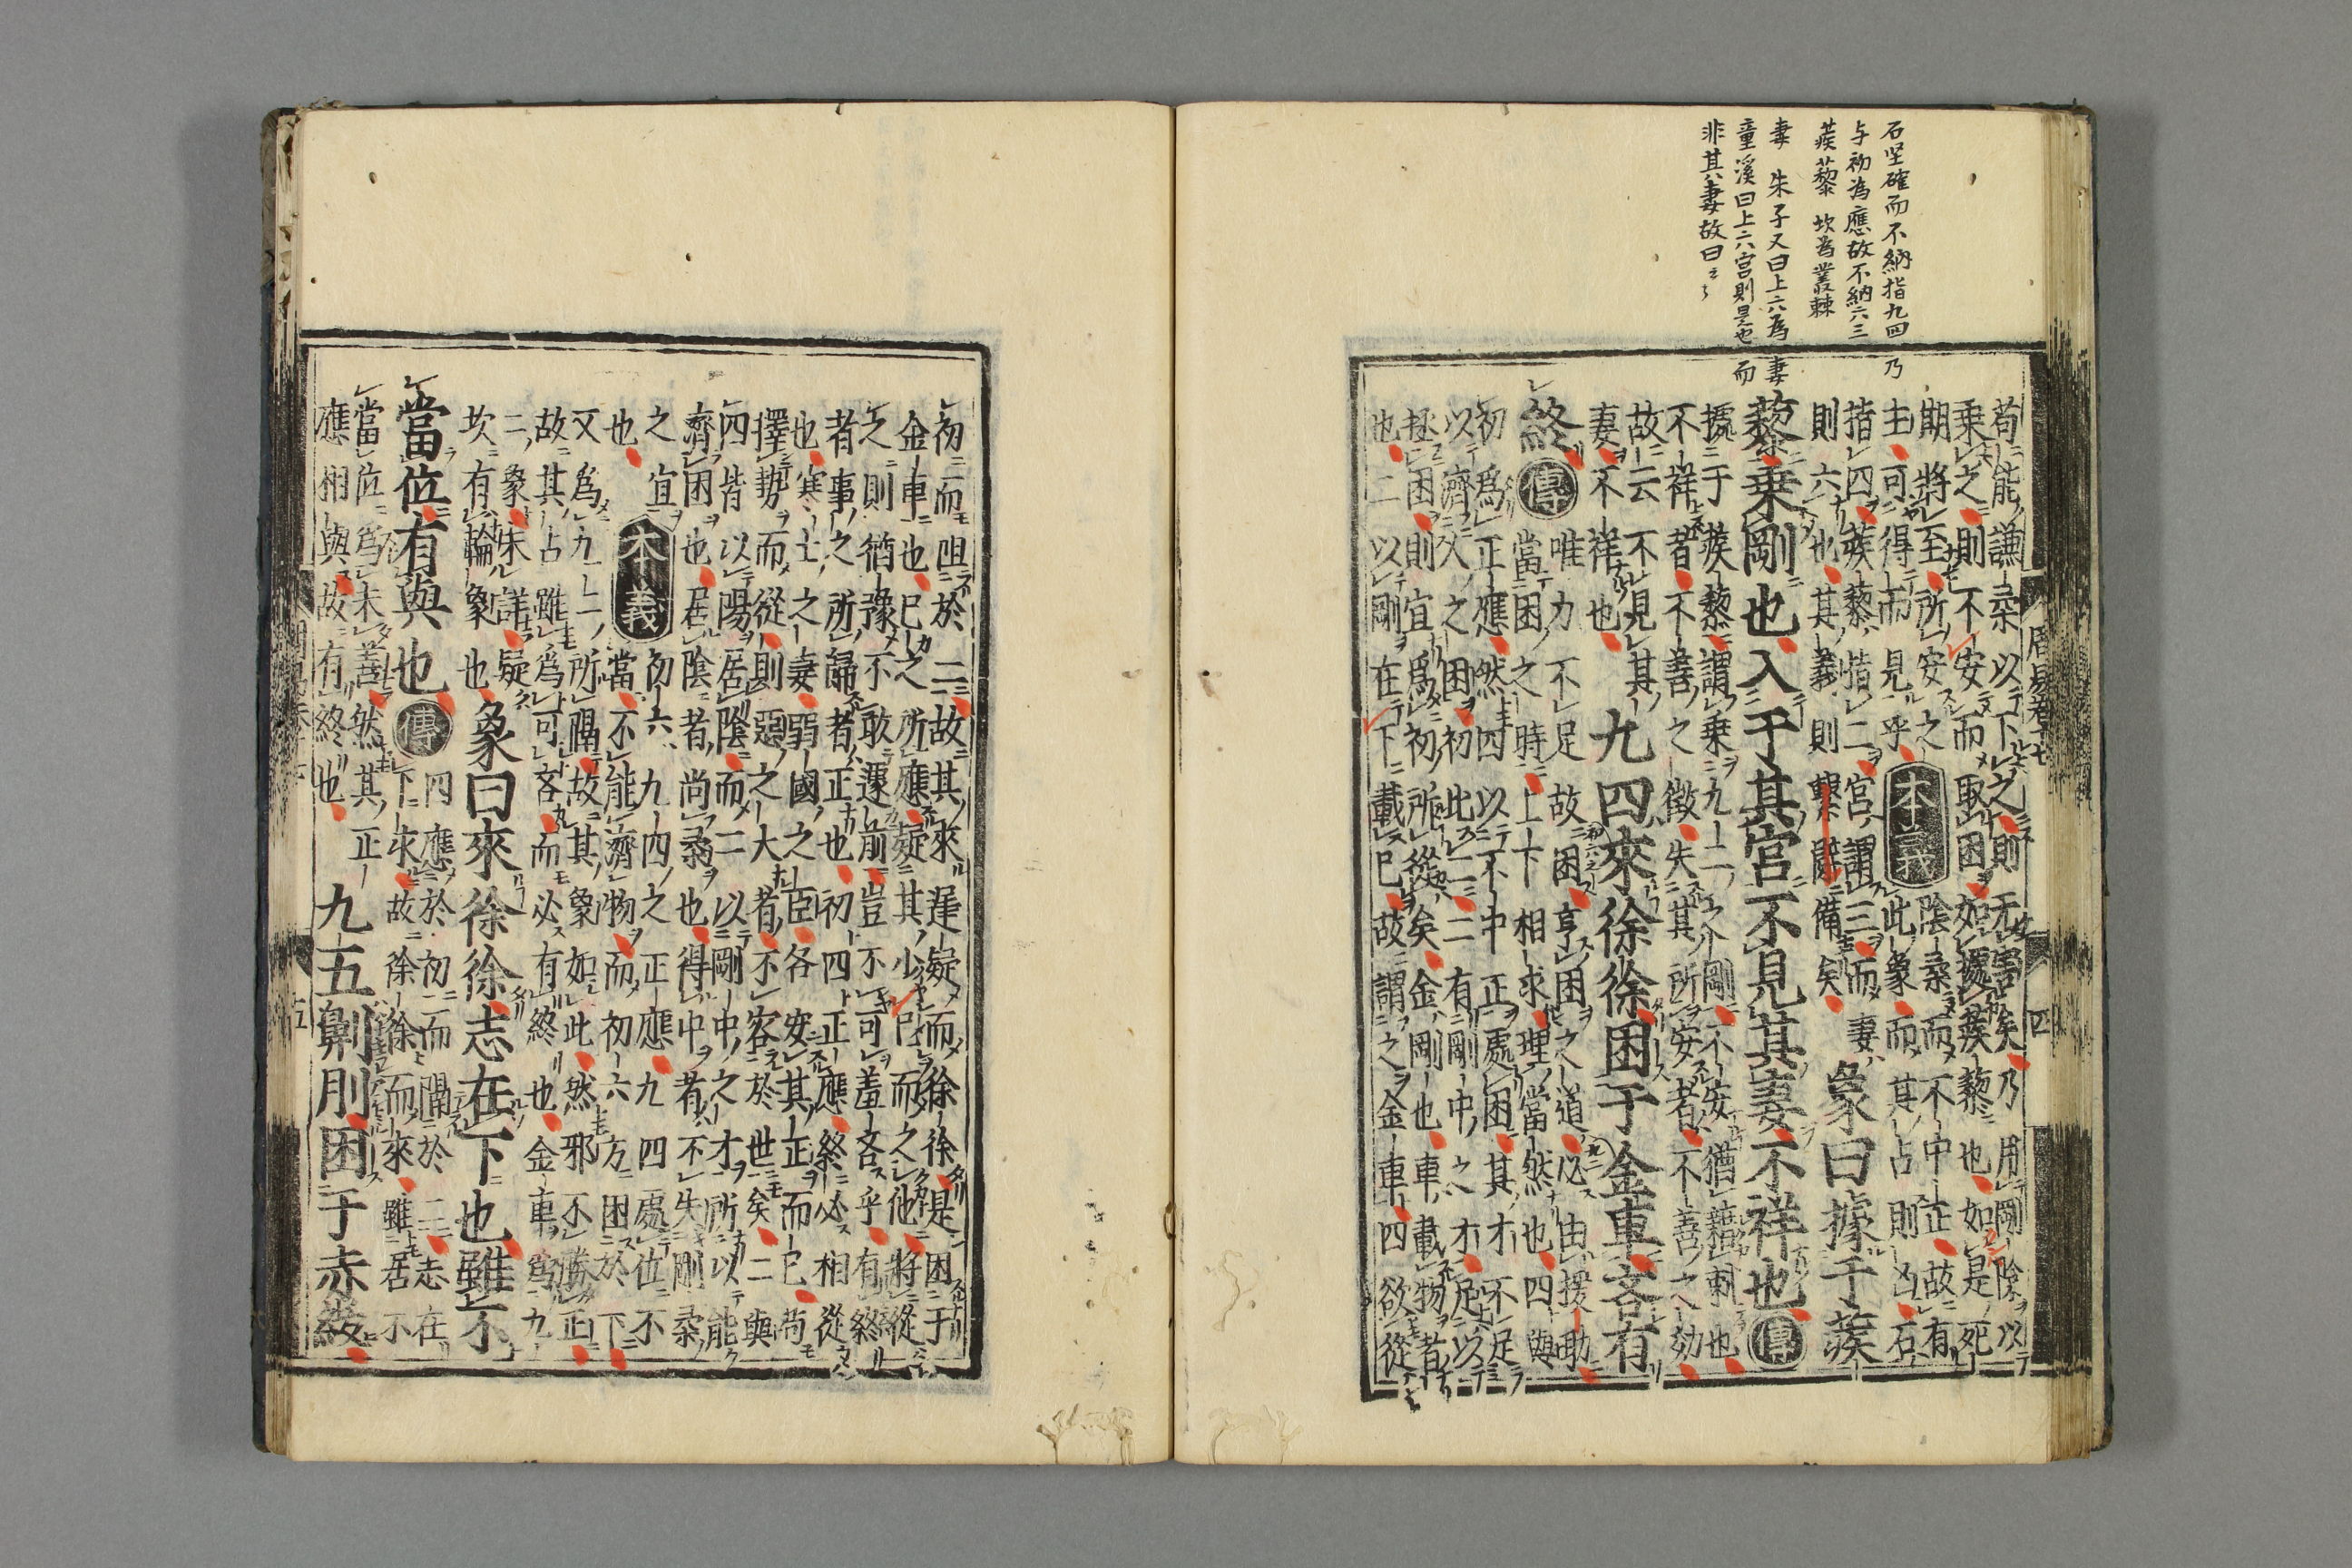 石坚確而不納指九四乃
与初為應故不納六三
蒺藜 坎為叢棘
妻 朱子又曰上六為妻
童溪曰上六宮則是也而
非其妻故曰云々
周易巻十七 四
苟能謙柔以下之則无害矣乃用剛險以
乗之則不安而取困如據蒺藜也如是死
期將至所安之
主可得而見乎
本義
陰柔而不中正故有
此象而其占則凶石
指四蒺藜指二宮謂三而妻
則六也其義則繫辭備矣
象曰據于蒺
藜乗剛也入于其宮不見其妻不祥也傳
據于蒺藜謂乗九二之剛不安猶藉刺也
不祥者不善之徵失其所安者不善之効
故云不見其
妻不祥也
九四來徐徐困于金車吝有
終傳
唯力不足故困亨困之道必由援助
當困之時上下相求理當然也四與
初爲正應然四以不中正處困其才不足
以濟人之困初比二二有剛中之才足以
拯困則宜爲初所從矣金剛也車載物者
也二以剛在下載己故謂之金車四欲從
初而阻於二故其來遲疑而徐徐是困于
金車也己之所應疑其少己而之他將從
之則猶豫不敢遽前豈不可羞吝乎有終
者事之所歸者正也初四正應終必相從
也寒士之妻弱國之臣各安其正而已苟
擇勢而從則惡之大者不容於世矣二與
四皆以陽居陰而二以剛中之才所以能
濟困也居陰者尚柔也得中者不失剛柔
之宜
也
本義
初六九四之正應九四處位不
當不能濟物而初六方困於下
又爲九二所隔故其象如此然邪不勝正
故其占雖爲可吝而必有終也金車爲九
二象未詳疑
坎有輪象也
象曰來徐徐志在下也雖不
當位有與也傳
四應於初而隔於二志在
下求故徐徐而來雖居不
當位爲未善然其正
應相與故有終也
九五劓刖困于赤紱